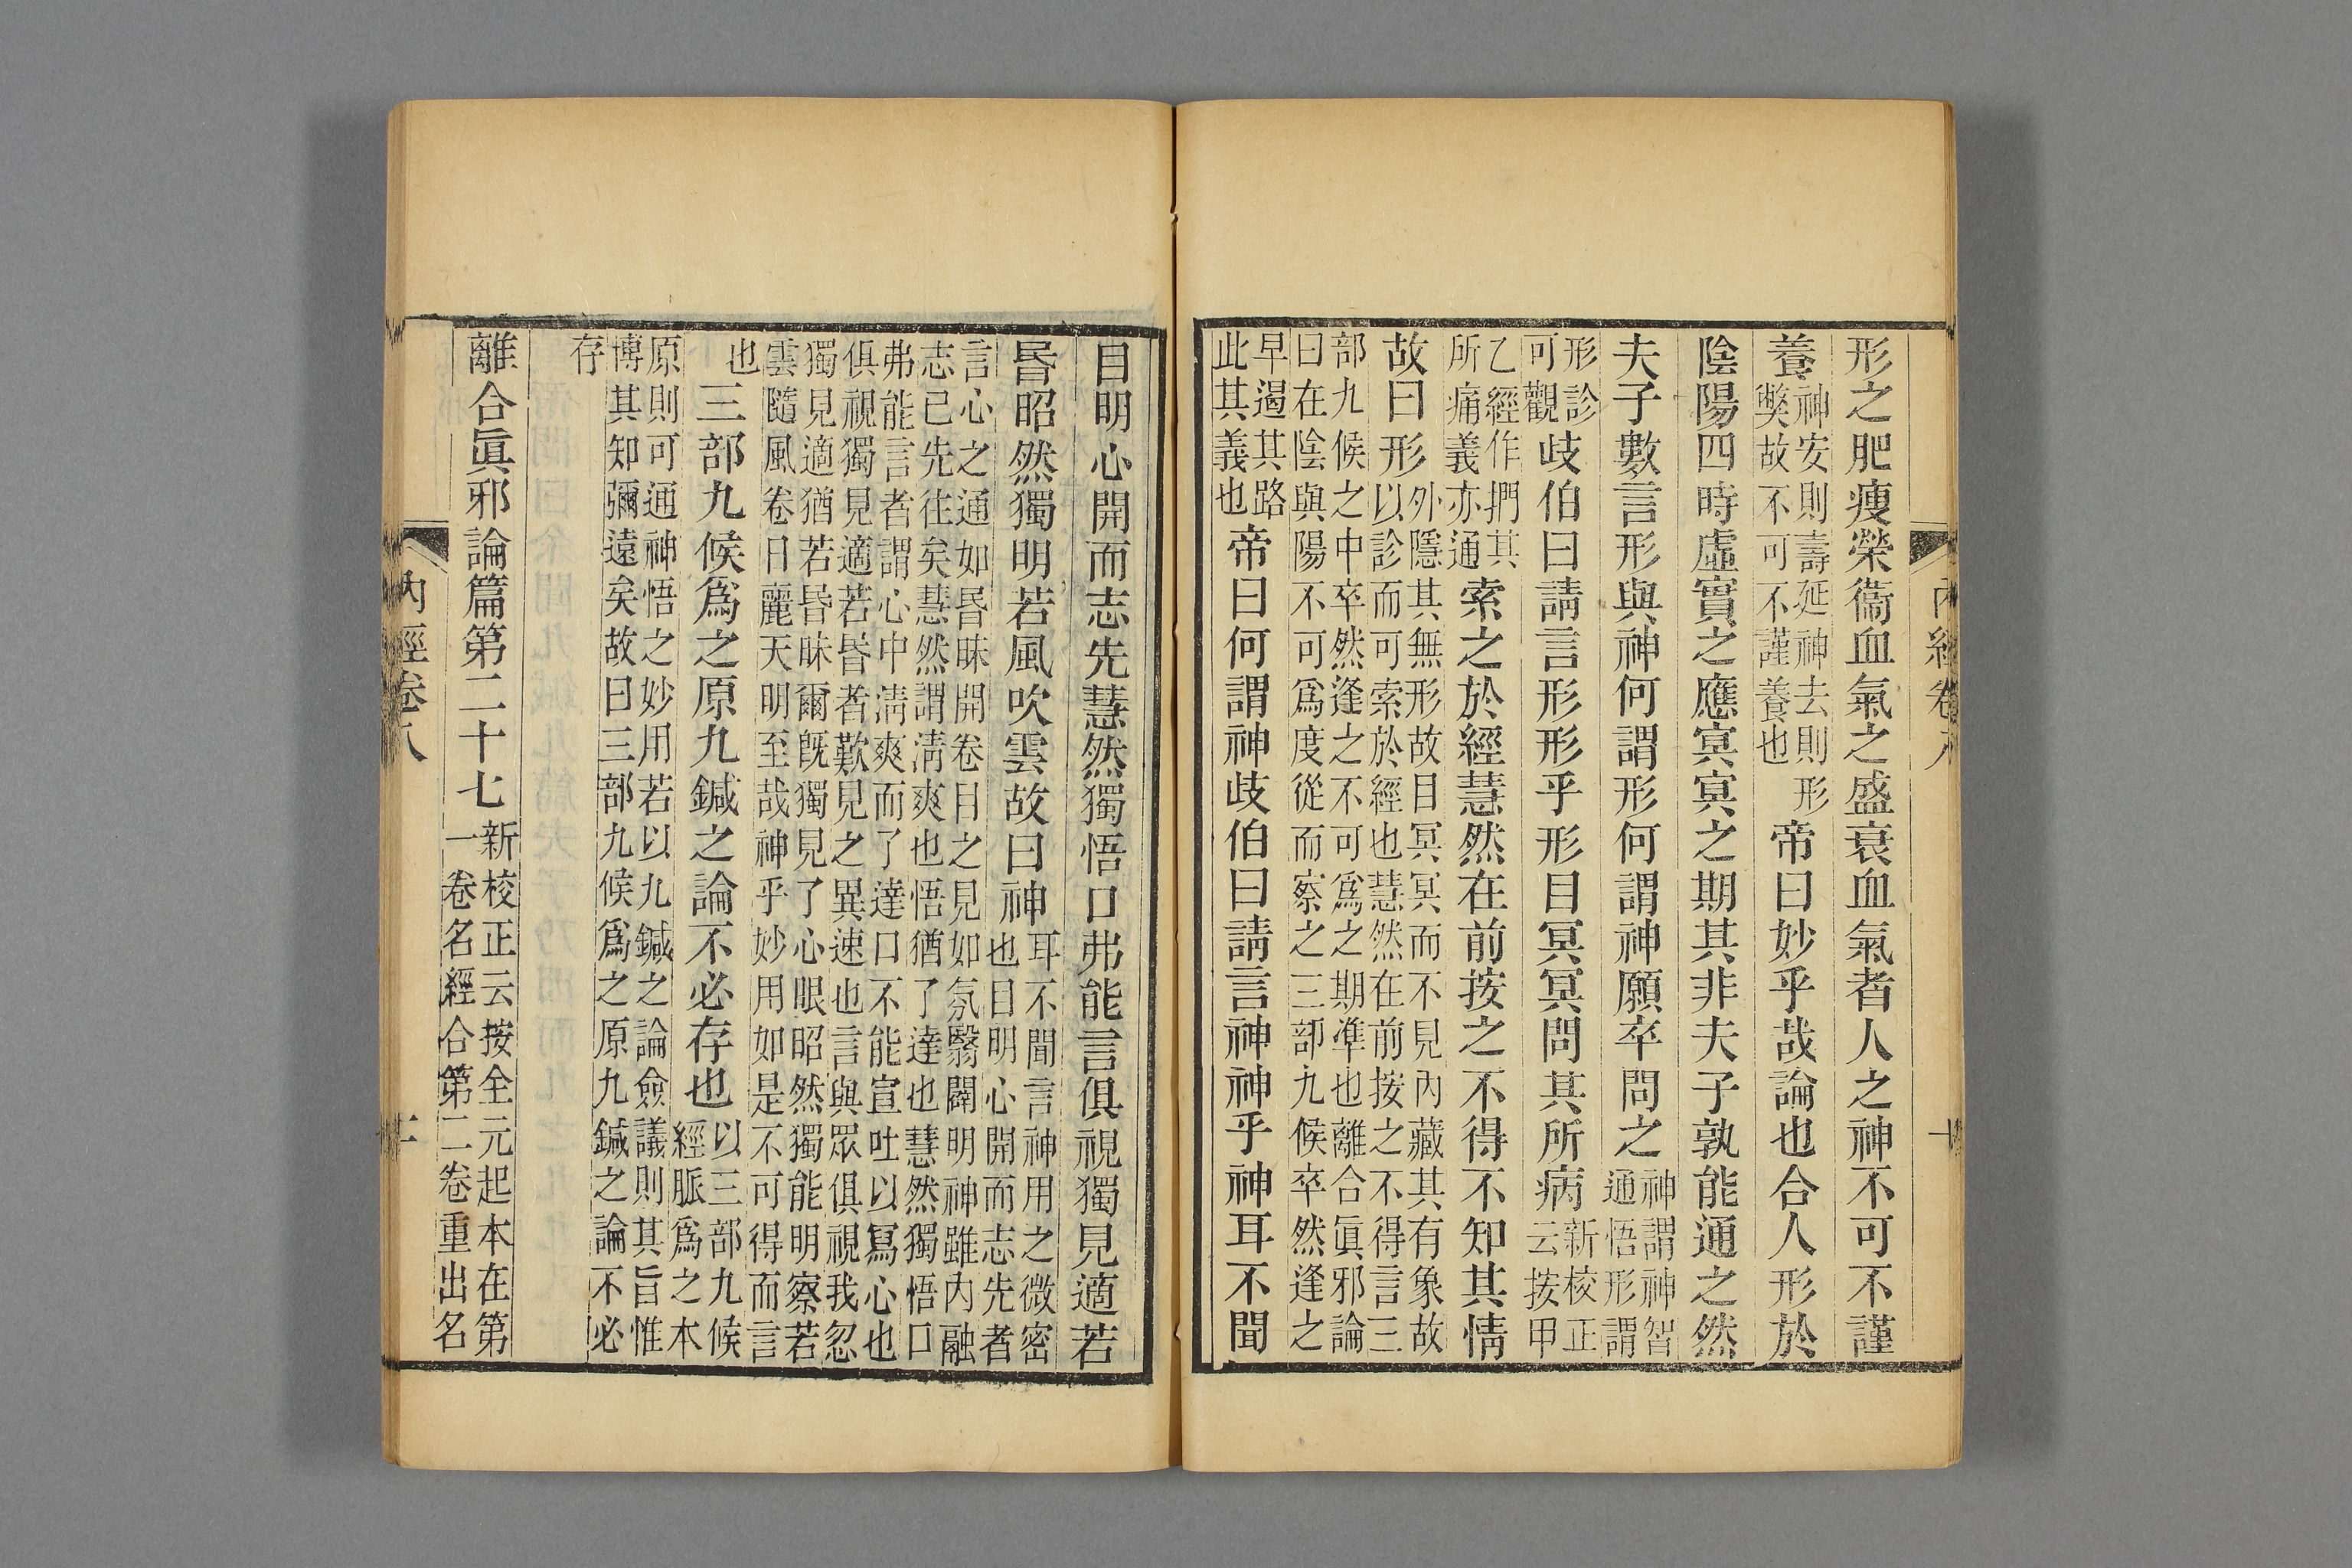 內經卷八
十
形之肥瘦榮衞血氣之盛衰血氣者人之神不可不謹
養神安則壽延神去則形弊故不可不謹養也帝曰妙乎哉論也合人形於
陰陽四時虛實之應冥冥之期其非夫子孰能通之然
夫子數言形與神何謂形何謂神願卒問之神謂神智通悟形謂
形診可觀歧伯曰請言形形乎形目冥冥問其所病新校正云按甲
乙經作捫其所痛義亦通索之於經慧然在前按之不得不知其情
故曰形外隱其無形故目冥冥而不見內藏其有象故以診而可索於經也慧然在前按之不得言三
部九候之中卒然逢之不可爲之期準也離合眞邪論曰在陰與陽不可爲度從而察之三部九候卒然逢之
早遏其路此其義也帝曰何謂神歧伯曰請言神神乎神耳不聞
目明心開而志先慧然獨悟口弗能言俱視獨見適若
昬昭然獨明若風吹雲故曰神耳不聞言神用之微密也目明心開而志先者
言心之通如昬昧開卷目之見如氛翳闢明神雖內融志已先往矣慧然謂清爽也悟猶了達也慧然獨悟口
弗能言者謂心中清爽而了達口不能宣吐以寫心也俱視獨見適若昬者歎見之異速也言與眾俱視我忽
獨見適猶若昬昧爾旣獨見了心眼昭然獨能明察若雲隨風卷日麗天明至哉神乎妙用如是不可得而言
也三部九候爲之原九鍼之論不必存也以三部九候經脈爲之本
原則可通神悟之妙用若以九鍼之論僉議則其旨惟博其知彌遠矣故曰三部九候爲之原九鍼之論不必
存
離合眞邪論篇第二十七新校正云按全元起本在第一卷名經合第二卷重出名
內經卷八